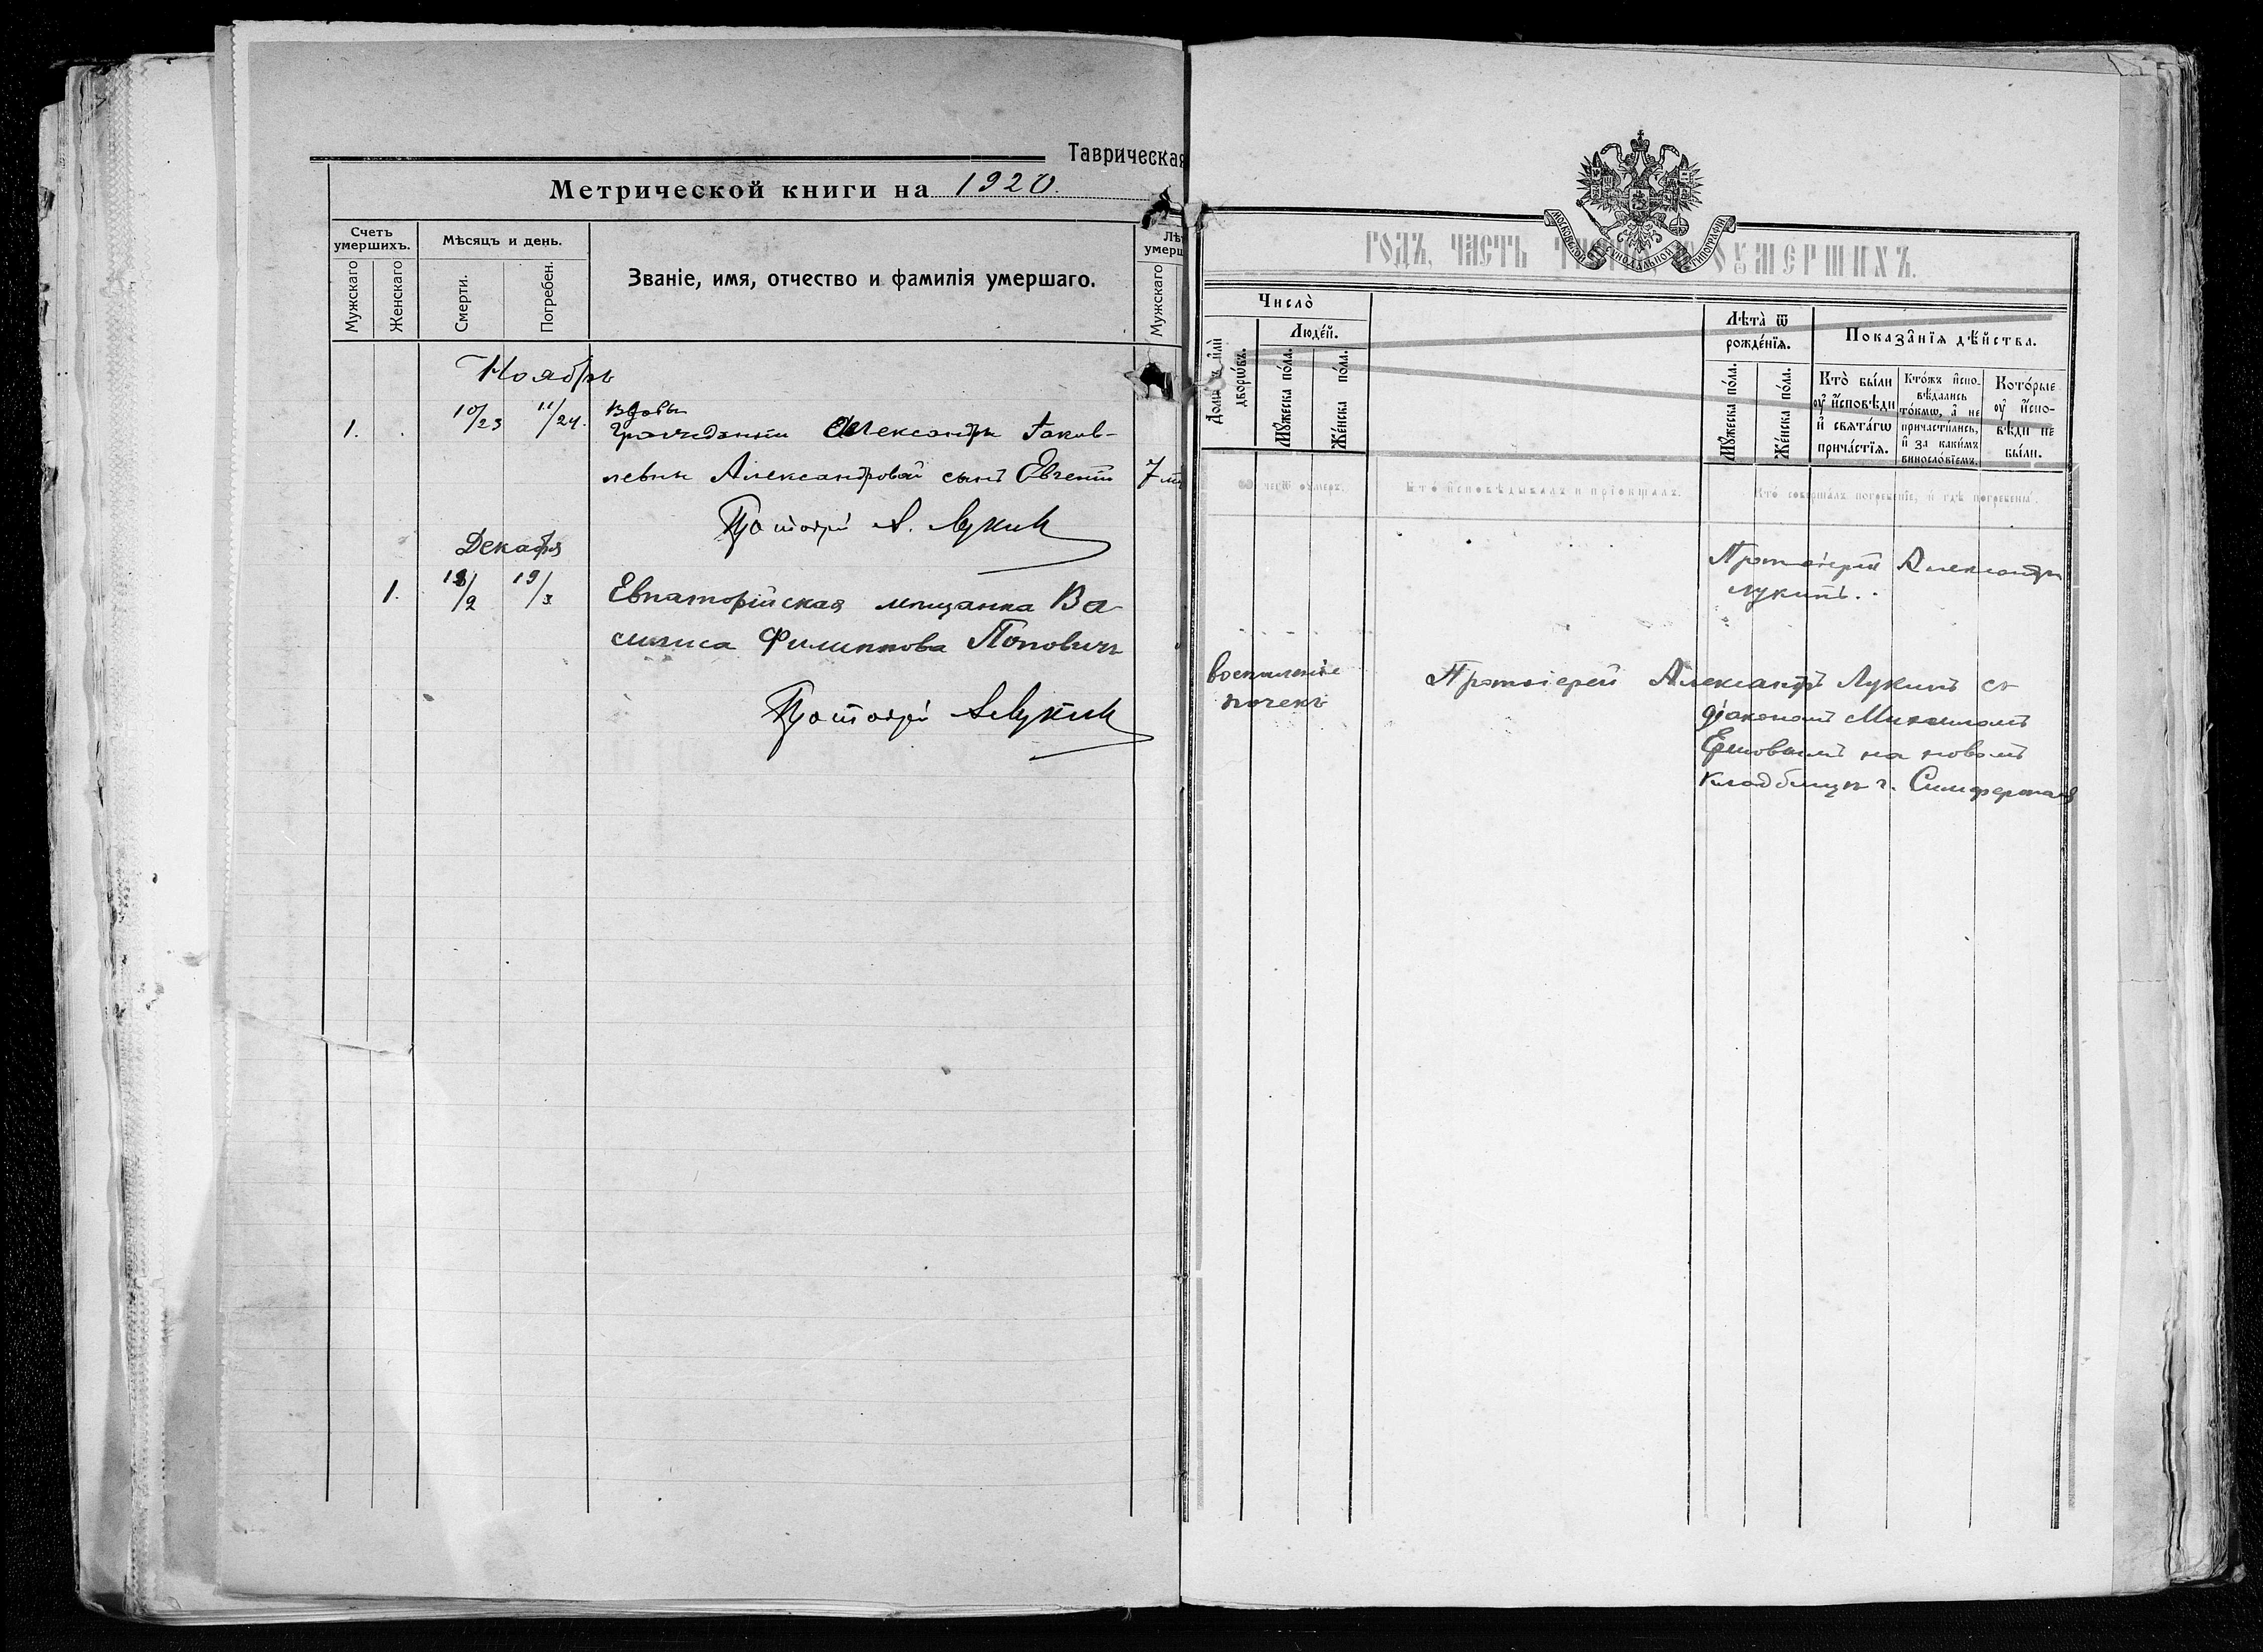 Таврическая
Метрической книги на 1920.
Счетъ умершихъ.
Мужскаго
Женскаго
Мѣсяцъ и день.
Смерти.
Погребен.
Званіе, имя, отчество и фамилія умершаго.
Мужскаго
Ноябрь
1.
10/23
11/24.
Вдовы
гражданки Александры Яков-
левны Александровой сынъ Евгеній
7
Протоіерей А. Лукинъ
Декабря
1.
19/3
Евпаторійская мѣщанка Ва-
силиса Филиппова Поповичъ
Протоіерей А Лукинъ
МОСКОВСКОЙ СѴНОДАЛЬНОЙ ТИПОГРАФІИ
ГОДЪ, ЧАСТЬ ОУМЕРШИХЪ.
Число̀
дворѡ́въ.
Люде́й.
Мꙋ́жеска по́ла.
Же́нска по́ла.
Лѣ́та ѿ
рожде́нїѧ.
Мꙋ́жеска по́ла.
Же́нска по́ла.
Показа̑нїѧ дѣ́йства.
Кто̀ бы́ли
ᲂу҆ и҆́сповѣди
и҆ свѧта́гѡ
прича́стїѧ.
Кто́жъ и҆спо-
вѣ́дались
то́кмѡ, а҆ не
причасти́лись,
и҆ за каки́мъ
винослѡ́вїемъ.
Кото́рые
ᲂу҆ и҆́спо-
вѣди не
бы́ли.
Кто̀ и҆сповѣ́дывалъ и прїѡбща́лъ.
Кто̀ соверша́лъ погребе́нїе, и҆ гдѣ̀ погребены̀.
Протоіерей Александръ
Лукинъ.
воспаленіе
почекъ
Протоіерей Александръ Лукинъ съ
діакономъ Михаиломъ
Ершовымъ на новомъ
кладбищѣ г. Симферополя